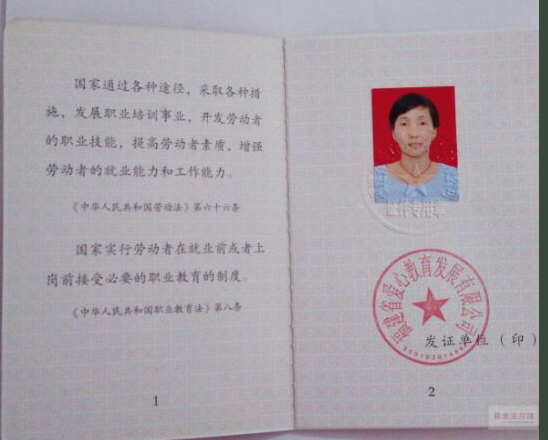 国家通过各种途径，采取各种措
施，发展职业培训事业，开发劳动者
的职业技能，提高劳动者素质，增强
劳动者的就业能力和工作能力。
《中华人民共和国劳动法》第六十六条
国家实行劳动者在就业前或者上
岗前接受必要的职业教育的制度。
《中华人民共和国职业教育法》第八条
1
福建省爱心教育发展有限公司
发证单位（印）
2